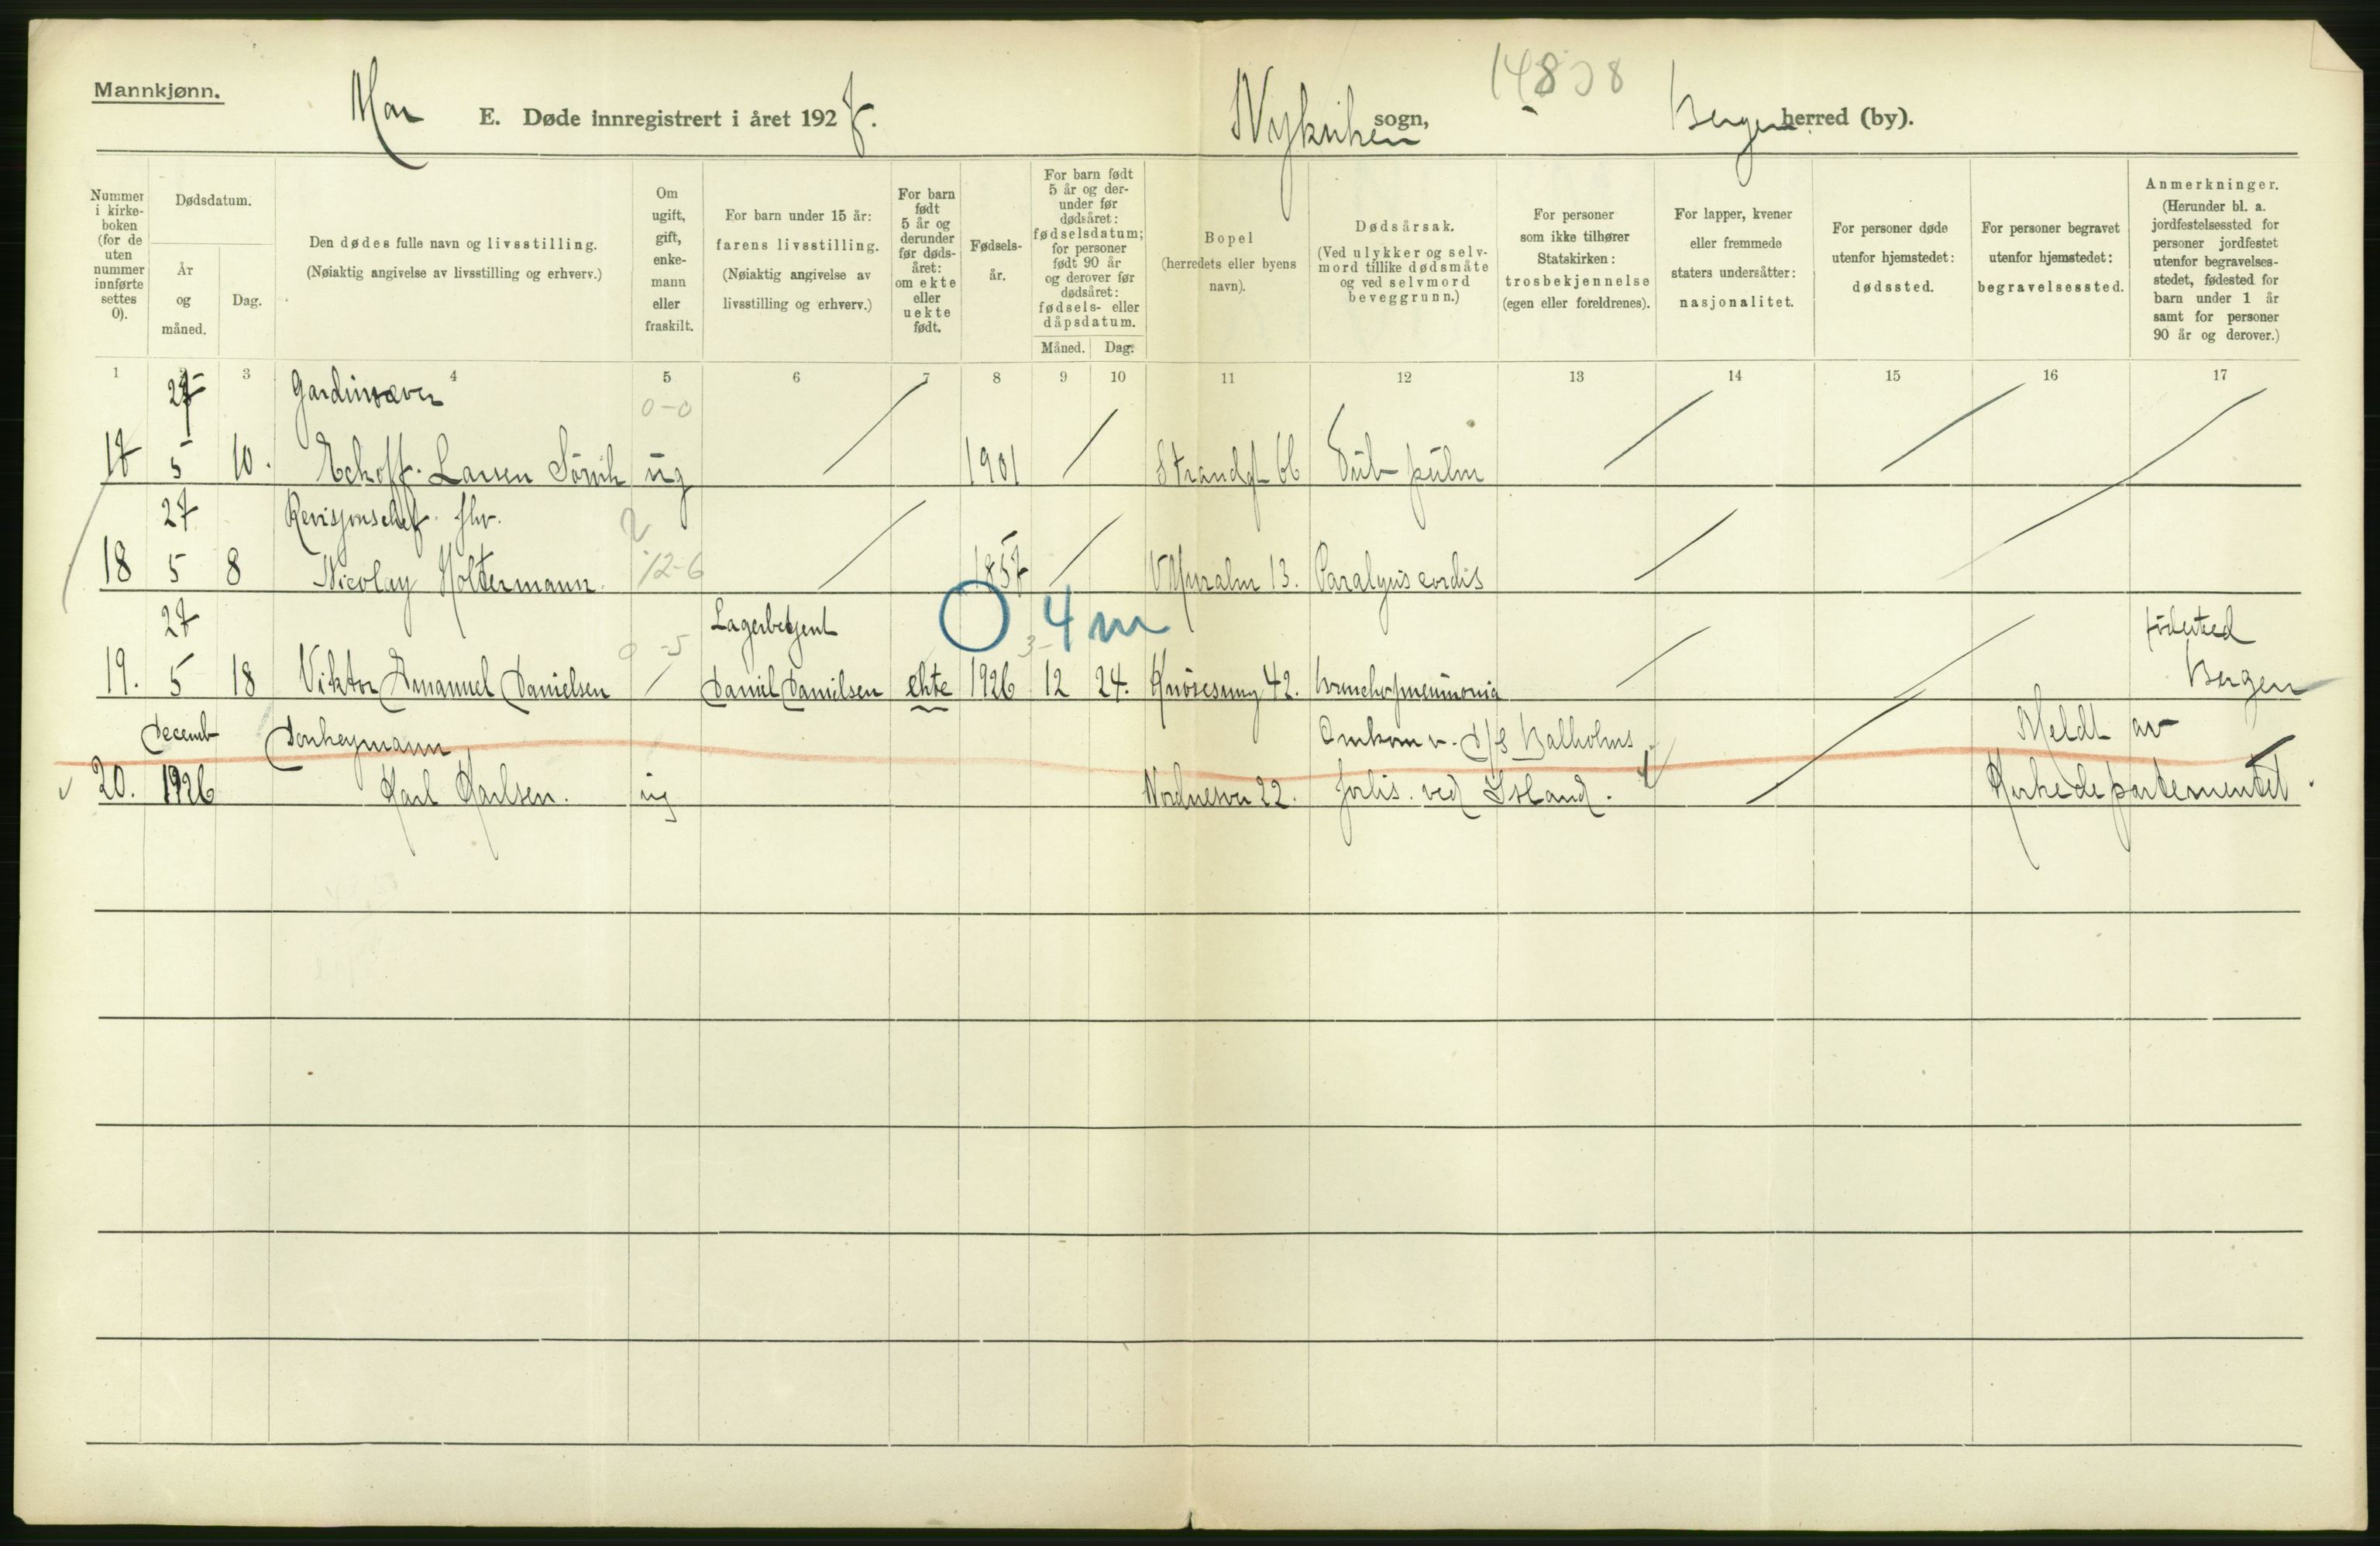 Mannkjønn.
Mai E. Døde innregistrert i året 1927. Nykirken sogn, 14808 Bergen herred (by).
Nummer i kirkeboken (for de uten nummer innførte settes 0).
Dødsdatum.
År og måned.
Dag.
Den dødes fulle navn og livsstilling.
(Nøiaktig angivelse av livsstilling og erhverv.)
Om ugift, gift, enkemann eller fraskilt.
For barn under 15 år:
farens livsstilling.
(Nøiaktig angivelse av livsstilling og erhverv.)
For barn født 5 år og derunder før dødsåret: om ekte eller uekte født.
Fødselsår.
For barn født 5 år og derunder før dødsåret: fødselsdatum; for personer født 90 år og derover før dødsåret: fødsels- eller dåpsdatum.
Måned. Dag.
Bopel
(herredets eller byens navn).
Dødsårsak.
(Ved ulykker og selvmord tillike dødsmåte og ved selvmord beveggrunn.)
For personer som ikke tilhører Statskirken: trosbekjennelse (egen eller foreldrenes).
For lapper, kvener eller fremmede staters undersåtter: nasjonalitet.
For personer døde utenfor hjemstedet: dødssted.
For personer begravet utenfor hjemstedet: begravelsessted.
Anmerkninger.
(Herunder bl. a. jordfestelsessted for personer jordfestet utenfor begravelsesstedet, fødested for barn under 1 år samt for personer 90 år og derover.)
1 3 4 5 6 7 8 9 10 11 12 13 14 15 16 17
27 0-0
17 5 10. Larsen ug 1901 Strandgt 66 Tub pulm
27 Revisjonschef fhv. 2
18 5 8 Nicolay Holtermann. 12-6 1857 13. Paralysis cordis
27 Lagerbetjent O 4 m fødested
19. 5 18 Viktor Emanuel Danielsen Daniel Danielsen ekte 1926 12 24. 42. bronchopneumonia Bergen
Decemb Donkeymann Omkom v. D/S Balholms Meldt av
20. 1926 Karl Karlsen. ug 22. forlis. ved Island. Kirkedepartementet